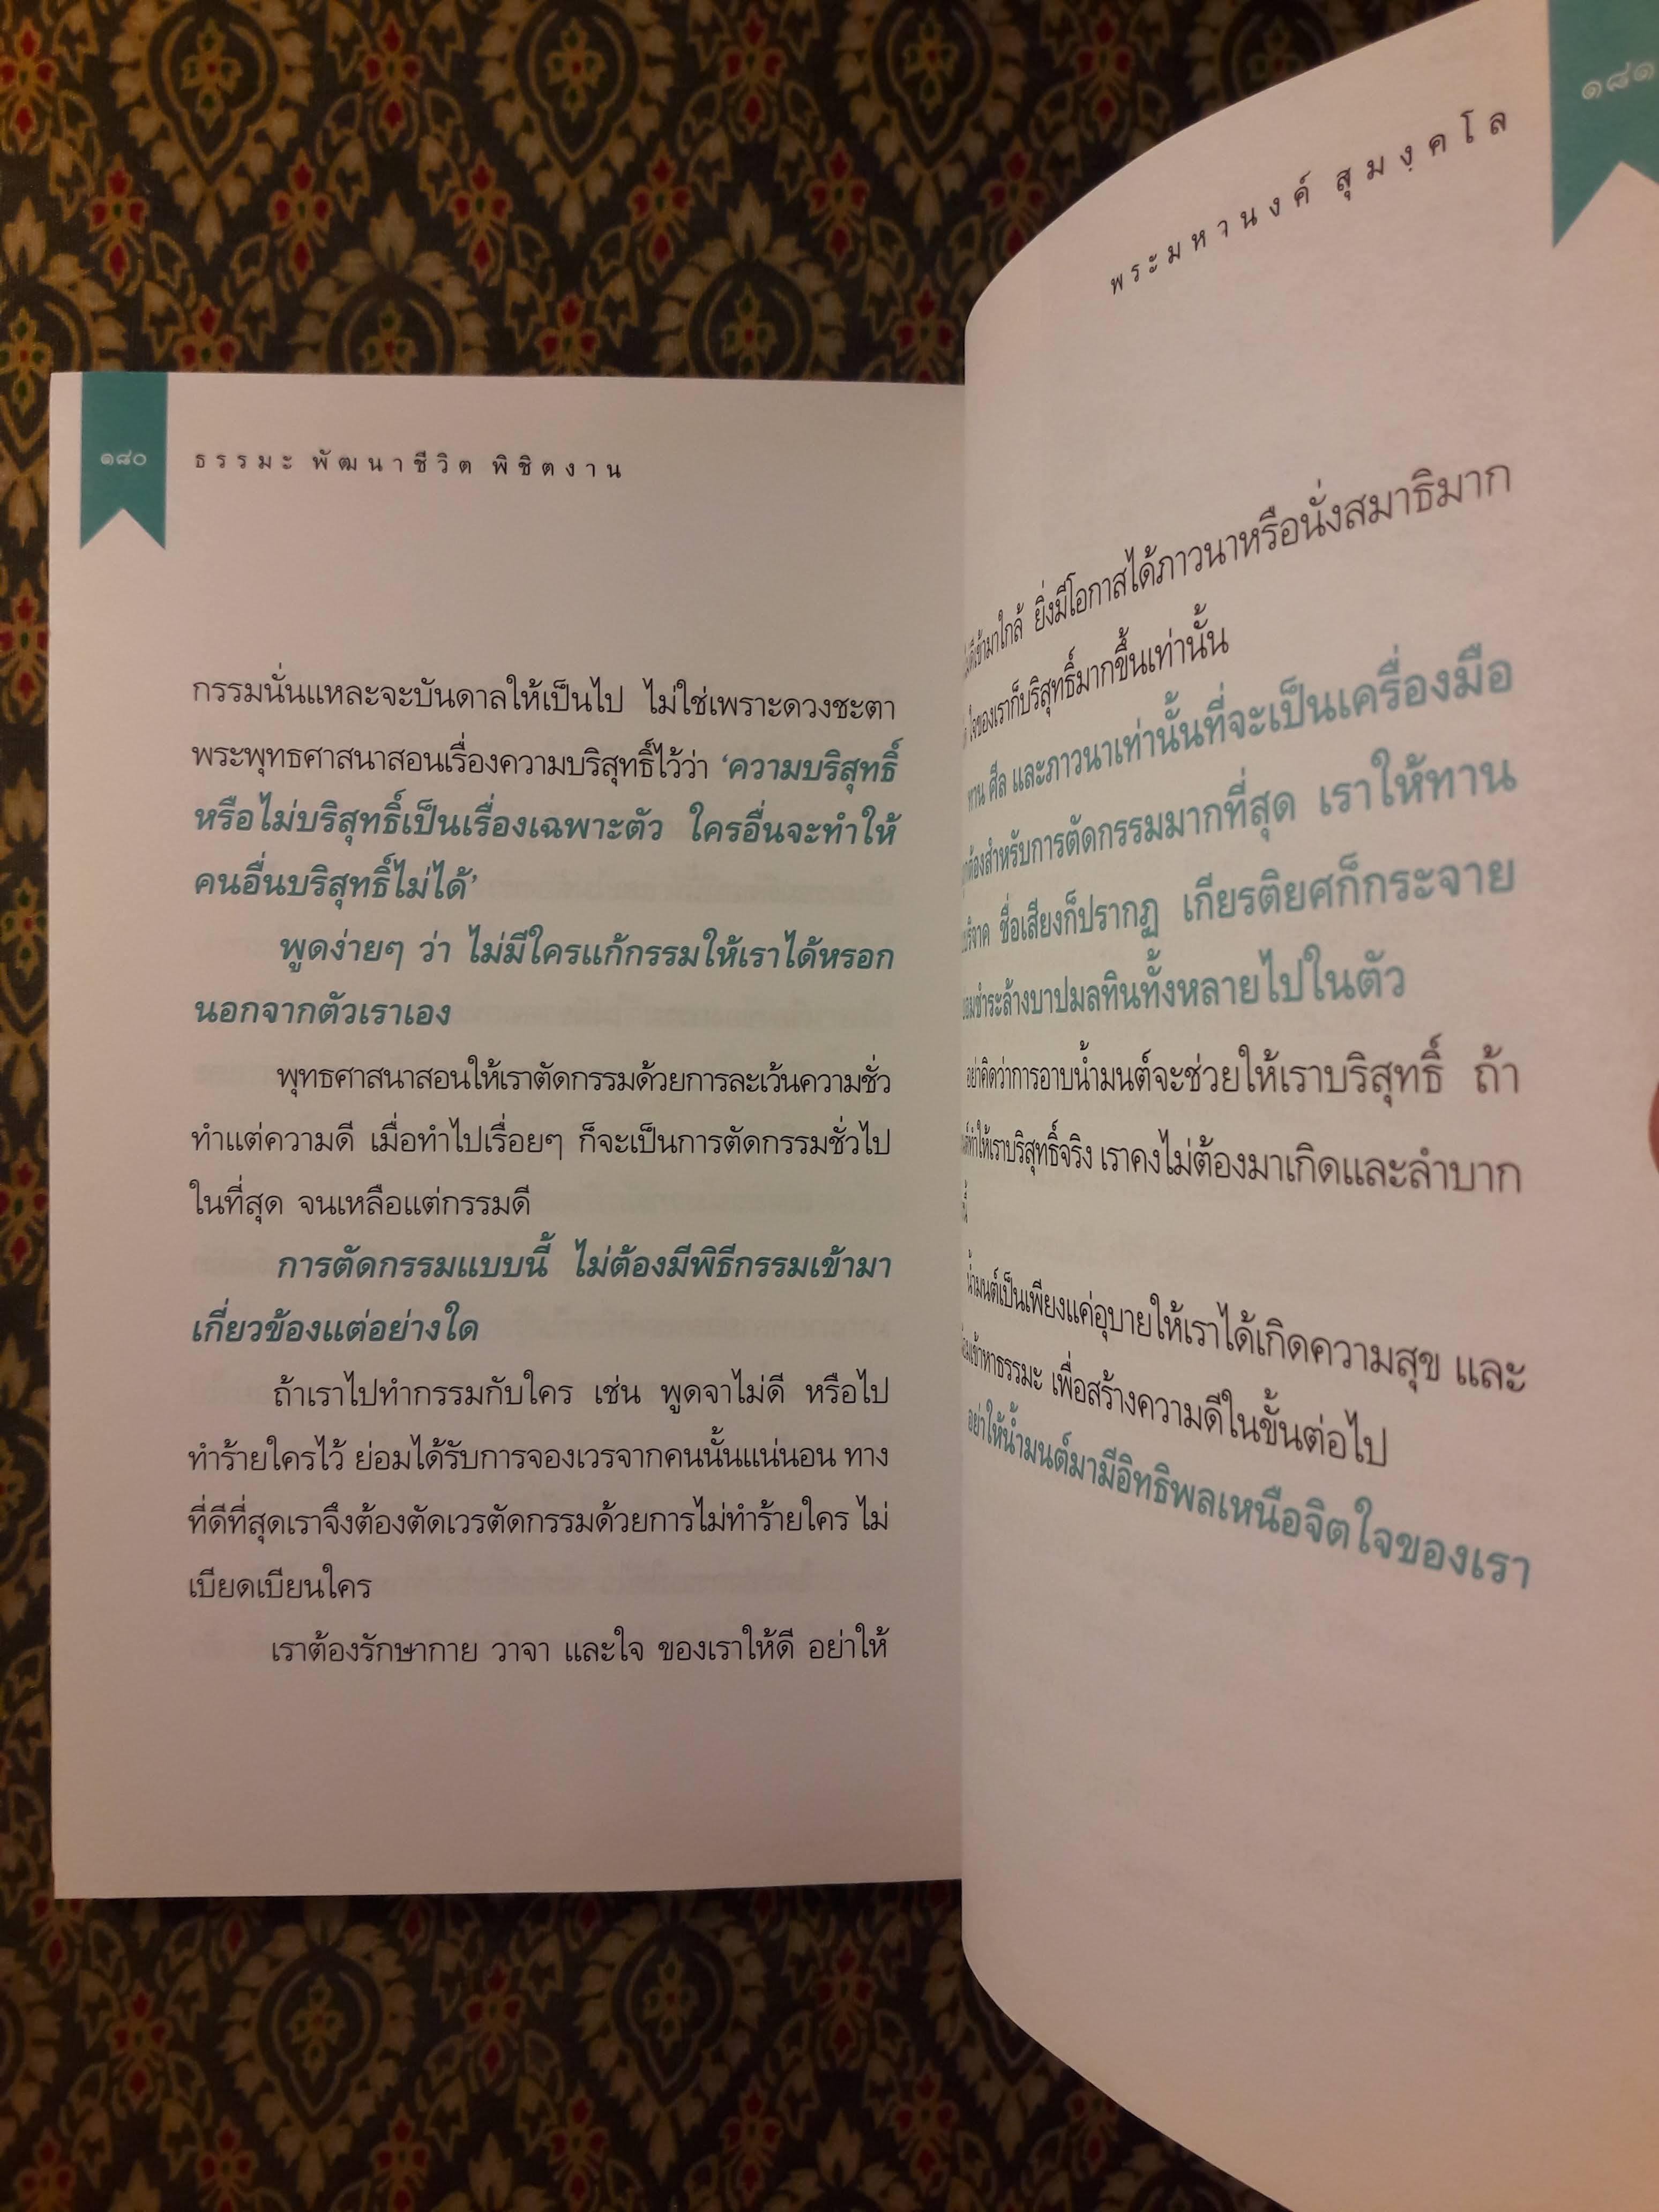 ๑๘๐
ธรรมะ พัฒนาชีวิต พิชิตงาน
กรรมนั่นแหละจะบันดาลให้เป็นไป ไม่ใช่เพราะดวงชะตา
พระพุทธศาสนาสอนเรื่องความบริสุทธิ์ไว้ว่า ‘ความบริสุทธิ์
หรือไม่บริสุทธิ์เป็นเรื่องเฉพาะตัว ใครอื่นจะทำให้
คนอื่นบริสุทธิ์ไม่ได้’
พูดง่ายๆ ว่า ไม่มีใครแก้กรรมให้เราได้หรอก
นอกจากตัวเราเอง
พุทธศาสนาสอนให้เราตัดกรรมด้วยการละเว้นความชั่ว
ทำแต่ความดี เมื่อทำไปเรื่อยๆ ก็จะเป็นการตัดกรรมชั่วไป
ในที่สุด จนเหลือแต่กรรมดี
การตัดกรรมแบบนี้ ไม่ต้องมีพิธีกรรมเข้ามา
เกี่ยวข้องแต่อย่างใด
ถ้าเราไปทำกรรมกับใคร เช่น พูดจาไม่ดี หรือไป
ทำร้ายใครไว้ ย่อมได้รับการจองเวรจากคนนั้นแน่นอน ทาง
ที่ดีที่สุดเราจึงต้องตัดเวรตัดกรรมด้วยการไม่ทำร้ายใคร ไม่
เบียดเบียนใคร
เราต้องรักษากาย วาจา และใจ ของเราให้ดี อย่าให้
๑๘๑
พระมหานงค์ สุมงฺคโล
เข้ามาใกล้ ยิ่งมีโอกาสได้ภาวนาหรือนั่งสมาธิมาก
ใจของเราก็บริสุทธิ์มากขึ้นเท่านั้น
ทาน ศีล และภาวนาเท่านั้นที่จะเป็นเครื่องมือ
ต้องสำหรับการตัดกรรมมากที่สุด เราให้ทาน
บริจาค ชื่อเสียงก็ปรากฏ เกียรติยศก็กระจาย
ชำระล้างบาปมลทินทั้งหลายไปในตัว
อย่าคิดว่าการอาบน้ำมนต์จะช่วยให้เราบริสุทธิ์ ถ้า
ทำให้เราบริสุทธิ์จริง เราคงไม่ต้องมาเกิดและลำบาก
น้ำมนต์เป็นเพียงแค่อุบายให้เราได้เกิดความสุข และ
เข้าหาธรรมะ เพื่อสร้างความดีในขั้นต่อไป
อย่าให้น้ำมนต์มามีอิทธิพลเหนือจิตใจของเรา